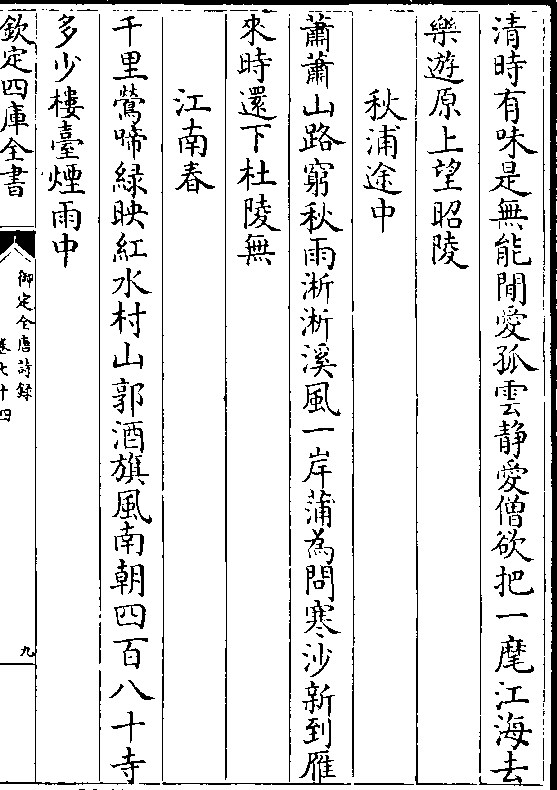 清時有味是無能閒愛孤雲静愛僧欲把一麾江海去
樂遊原上望昭陵
秋浦途中
蕭蕭山路窮秋雨淅淅溪風一岸蒲為問寒沙新到雁
來時還下杜陵無
江南春
千里鶯啼緑映紅水村山郭酒旗風南朝四百八十寺
多少樓臺煙雨中
欽定四庫全書
御定全唐詩録
卷七十四
九